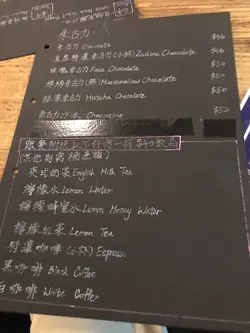 朱古力
朱古力 Chocolate $46
星座特濃朱古力(小杯) Zodiac Chocolate $46
玫瑰朱古力 Rose Chocolate $50
綿綿朱古力(熱) Marshmallow Chocolate $50
抹茶朱古力 Matcha Chocolate
朱古力沙冰 $52
跟餐附送以下任何一杯 $40飲品
英式奶茶 English Milk Tea
檸檬水 Lemon Water
檸檬蜂蜜水 Lemon Honey Water
檸檬紅茶 Lemon Tea
特濃咖啡 (小杯) Espresso
黑咖啡 Black Coffee
白咖啡 White Coffee